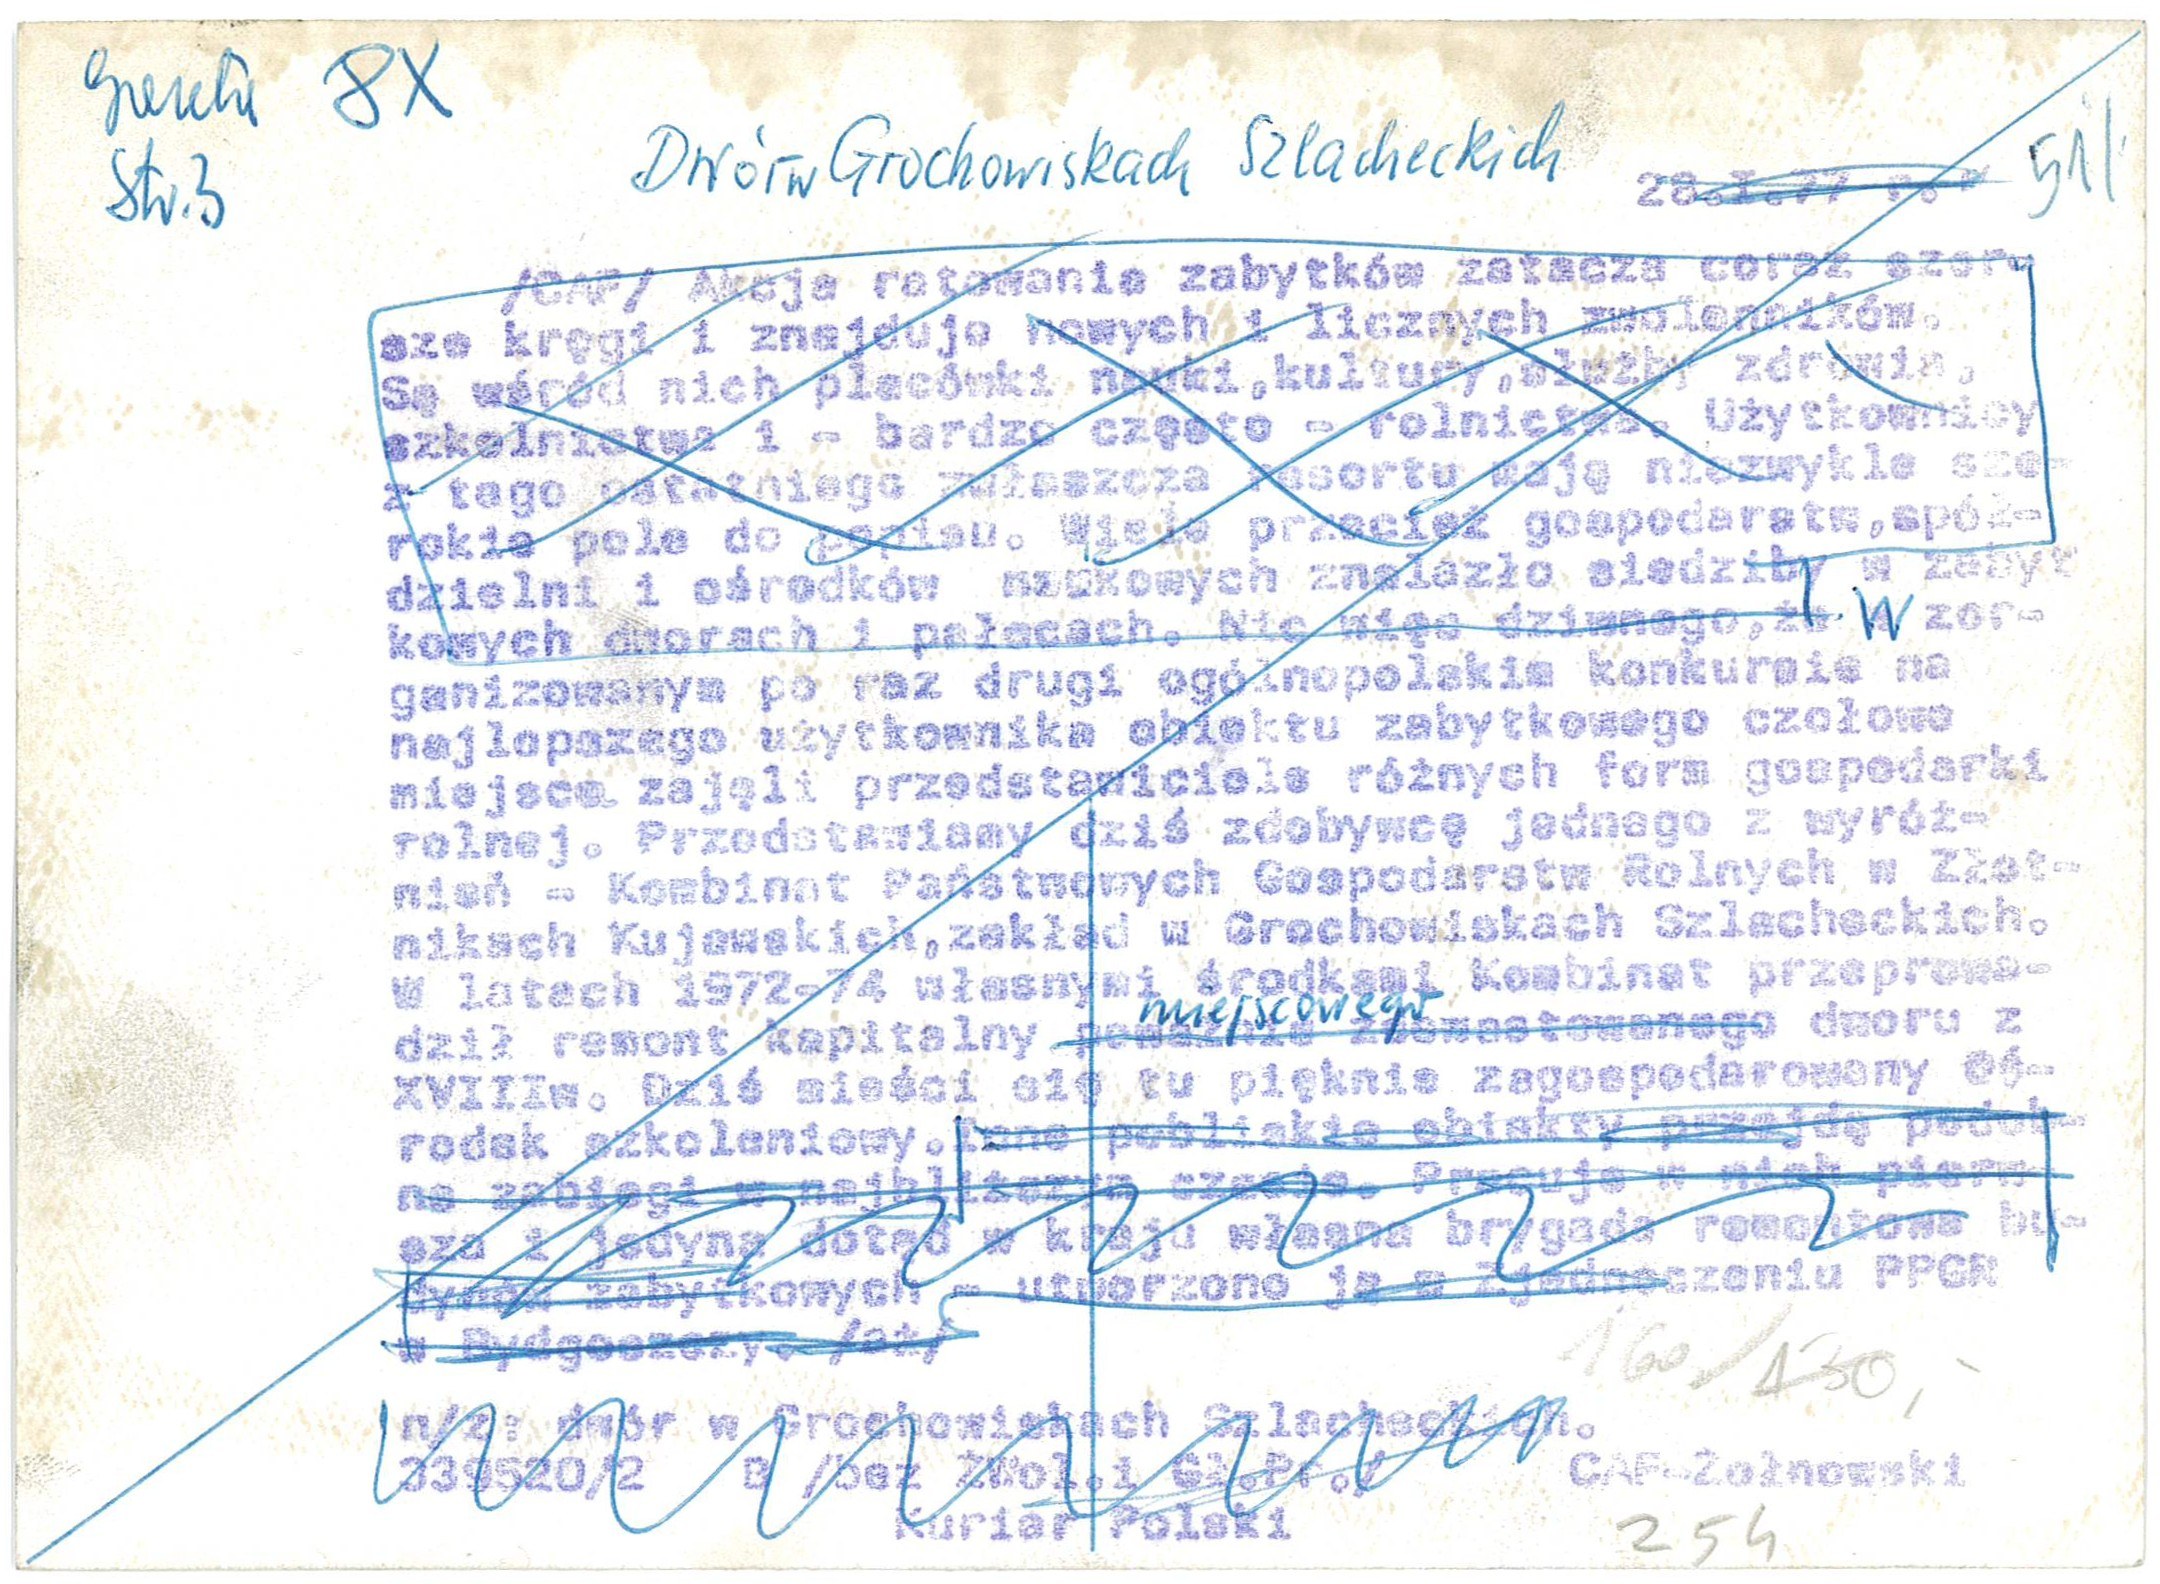 8X
Str. 3
Dwór w Grochowiskach Szlacheckich
28.I.77 r.
511
/CAF/ Akcja ratowania zabytków zatacza coraz szer-
sze kręgi i znajduje nowych i licznych zwolenników.
Są wśród nich placówki nauki,kultury,służby zdrowia,
szkolnictwa i - bardzo często - rolnictwa. Użytkownicy
z tego ostatniego zwłaszcza resortu mają niezwykle sze-
rokie pole do popisu. Wiele przecież gospodarstw,spół-
dzielni i ośrodków naukowych znalazło siedziby w zabyt
kowych dworach i pałacach. Nic więc dziwnego,że W zor-
ganizowanym po raz drugi ogólnopolskim konkursie na
najlepszego użytkownika obiektu zabytkowego czołowe
miejsca zajęli przedstawiciele różnych form gospodarki
rolnej. Przedstawiamy dziś zdobywcę jednego z wyróż-
nień - Kombinat Państwowych Gospodarstw Rolnych w Złot-
nikach Kujawskich,zakład w Grochowiskach Szlacheckich.
W latach 1972-74 własnymi środkami Kombinat przeprowa-
miejscowego
dził remont kapitalny poważnie zdewastowanego dworu z
XVIIIw. Dziś mieści się tu pięknie zagospodarowany Oś-
rodek szkoleniowy.Inne pobliskie obiekty przejdą podob-
ne zabiegi w najbliższym czasie. Pracuje w nich pierw
sza i jedyna dotąd w kraju własna brygada remontowa bu-
dynków zabytkowych - utworzono ją w Zjednoczeniu PPGR
w Bydgoszczy. /at/
160 / 130,-
n/z: dwór w Grochowiskach Szlacheckich.
339520/2 D /bez Zwol.i Gł.Pr./ CAF-Żołnowski
Kurier Polski
254